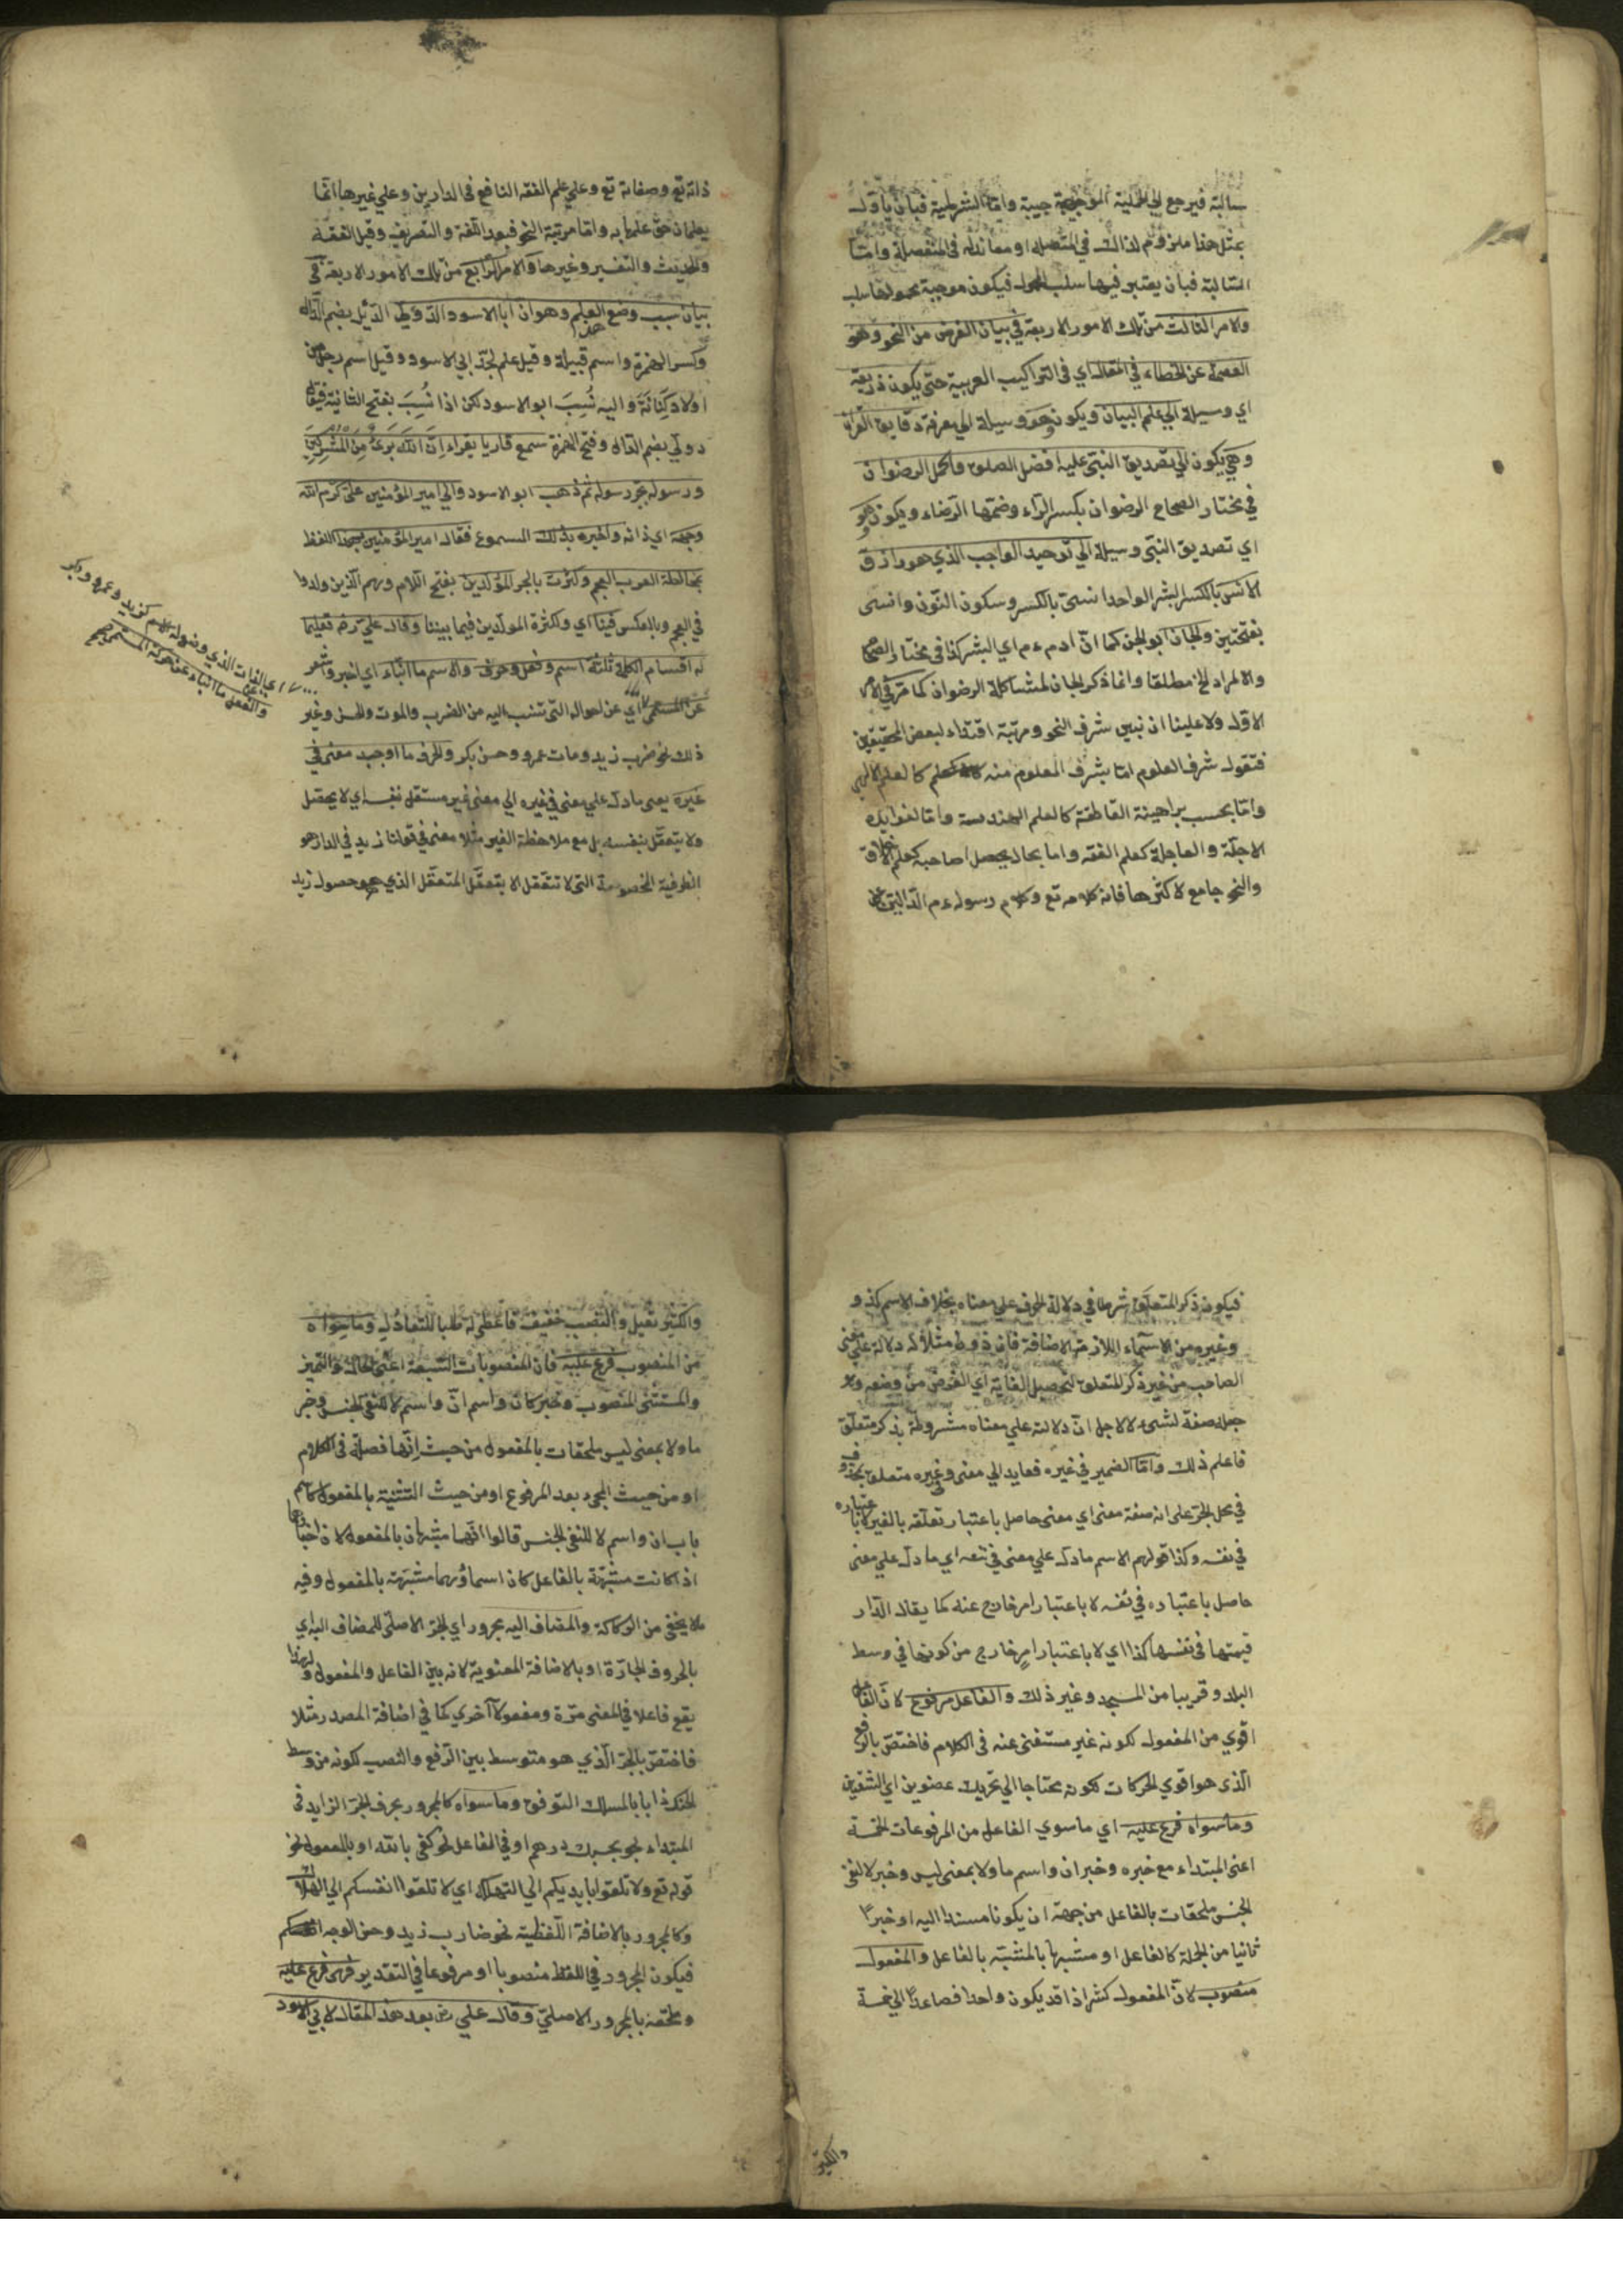 سالبة فيرجع الي الحملية الموجبة جيبة واما الشرطية فبان ياول
بمثل هذا ملزوم لذالك في المتصلة او معاندله في المنفصلة وامتا
السالبة فبان يعتبر فيها سلب المحمول فيكون موجبة محمولها سلب
والامر الثالث من تلك الامور الاربعة في بيان الغرض من النحو وهو
العصمة عن الخطاء في المقالة اي في التراكيب العربية حتى يكون ذريعة
اي وسيلة الي علم البيان ويكون هو وسيلة الي معرفة دقايق القران
وهي يكون الي تصديق النبى عليه افضل الصلوة واكمل الرضوان
في مختار الصحاح الرضوان بكسر الراء وضمها الرضاء ويكون هو
اي تصديق النبى وسيلة الي توحيد الواجب الذي هو رازق
الانس بالكسر البشر الواحد انسى بالكسر وسكون النون وانسى
بفتحتين والجان ابو الجن كما ان ادم ءم اي البشر كذا في مختار الصحا
والمراد الجن مطلقا وانما ذكر الجان لمشاكلة الرضوان كما مر في الامر
الاول ولا علينا ان نبين شرف النحو ومرتبة اقتداء لبعض المحققين
فنقول شرف العلوم اما بشرف المعلوم منه كالعلم الالهي
واما بحسب براهينة القاطعة كالعلم الهندسة واما لفوايده
الاجلة والعاجلة كعلم الفقه واما بحال يحصل لصاحبه كعلم الاخلاق
والنحو جامع لاكثرها فانه كلامه تع وكلام رسوله ءم الدالين على
ذاته تع وصفاته تع وعلي علم الفقه النافع في الدارين وعلي غيرها انما
يعلمان حق علمها به واما مرتبة النحو فبعد اللغة والتصريف وقبل الفقه
والحديث والتفسير وغيرها والامر الرابع من تلك الامور الاربعة في
بيان سبب وضع العلم وهو ان ابا الاسود الدؤلي الدئل بضم الدال
وكسر الهمزة واسم قبيلة وقيل علم لجد ابي الاسود وقيل اسم رجل من
اولاد كنانة واليه نسب ابو الاسود لكن اذا نسب بفتح الثانية فيقال
دولي بضم الدال وفتح الهمزة سمع قاريا يقراء ان الله برئ من المشركين
ورسوله بجر رسوله ثم ذهب ابو الاسود والي امير المؤمنين على كرم الله
وجهه اي ذاته واخبره بذلك المسموع فقال امير المؤمنين هذا اللفظ
بمخالطة العرب العجم وكثرت بالجر المولدين بفتح اللام وهم الذين ولدوا
في العجم وبالعكس فينا اي ولكثرة المولدين فيما بيننا وقال علي رض تعليما
له اقسام الكلمة ثلثة اسم وفعل وحرف والاسم ما انباء اي اخبر واشعر
عن المسمى اي عن احواله التى تنسب اليه من الضرب والموت والحسن وغير
ذلك نحو ضرب زيد ومات عمرو وحسن بكر والحرف ما اوجد معنى في
غيره يعنى مادل علي معنى في غيره الي معنى غير مستقل بنفسه اي لا يحصل
ولا يتعقل بنفسه بل مع ملاحظة الغير مثلا معنى في قولنا زيد في الدار هو
الظرفية المخصوصة التى لا تتعقل الا بتعقل المتعقل الذي هو حصول زيد
اي بالذات الذي وضع له الاسم كزيد وعمرو وبكر
والفعل ما انباء عن حركة المسمى صح
فيكون ذكر المتعلق شرطا في دلالة الحرف علي معناه بخلاف الاسم كذو و
وغيره من الاسماء اللازمة الاضافة فانه ذو مثلا له دلالة على معنى
الصاحب من غير ذكر المتعلق لتحصيل الغاية اي الغرض من وضعه وهو
جعله صفة لشىء لا لاجل ان دلالته علي معناه مشروطة بذكر متعلق
فاعلم ذلك واما الضمير في غيره فعايد الي معنى وغيره متعلق بمحذوف
في محل الجر على انه صفة معنى اي معنى حاصل باعتبار تعلقه بالغير لا باعتباره
في نفسه وكذا قولهم الاسم مادل علي معنى في نفسه اي ما دل علي معنى
حاصل باعتباره في نفسه لا باعتبار امر خارج عنه كما يقال الدار
قيمتها في نفسها كذا اي لا باعتبار امر خارج من كونها في وسط
البلد وقريبا من المسجد وغير ذلك والفاعل مرفوع لان الفاعل
اقوي من المفعول لكونه غير مستغنى عنه في الكلام فاختص بالرفع
الذى هو اقوي الحركات لكونه محتاجا الي تحريك عضوين اي الشفتين
وماسواه فرع عليه اي ماسوي الفاعل من المرفوعات الخمسة
اعنى المبتداء مع خبره وخبر ان واسم ما ولا بمعنى ليس وخبر لا لنفى
الجنس ملحقات بالفاعل من جهة ان يكونا مسندا اليه او خبرا
ثانيا من الجملة كالفاعل او مشبها بالمشبه بالفاعل والمفعول
منصوب لان المفعول كثير اذ قد يكون واحدا فصاعدا الي خمسة
والكثير
والكثير ثقيل والنصب خفيف فاعطى له طلبا للتعادل وماسواه
من المنصوب فرع عليه فان المنصوبات السبعة اعنى الحال والتميز
والمستثنى المنصوب وخبر كان واسم ان واسم لا لنفى الجنس وخبر
ما ولا بمعنى ليس ملحقات بالمفعول من حيث انها فضلة في الكلام
او من حيث المجىء بعد المرفوع او من حيث التشبيه بالمفعول كاسم
باب ان واسم لا لنفى الجنس قالوا انهما مشبهان بالمفعول لان اخبارهما
اذا كانت مشبهة بالفاعل كان اسماؤهما مشبهة بالمفعول وفيه
ملا يخفى من الركاكة والمضاف اليه مجرور اي الجر الاصلى للمضاف اليه اي
بالحروف الجارة او بالاضافة المعنوية لانه بين الفاعل والمفعول ولهذا
يقع فاعلا في المعنى مرة ومفعولا اخري كما في اضافة المصدر مثلا
فاختص بالجر الذي هو متوسط بين الرفع والنصب لكونه من وسط
الحنك ذابا بالمسلك التوفق وماسواه كالمجرور بحرف الجر الزايد في
المبتداء نحو بحسبك درهم او في الفاعل نحو كفى بالله او بالمفعول نحو
قوله تع ولا تلقوا بايديكم الي التهلكة اي لا تلقوا انفسكم الي الهلاك
وكالمجرور بالاضافة اللفظية نحو ضارب زيد وحسن الوجه
فيكون المجرور في اللفظ منصوبا او مرفوعا في التقدير فهى فرع عليه
وملحقة بالمجرور الاصلي وقال علي رض بعد هذ المقال لابي الاسود